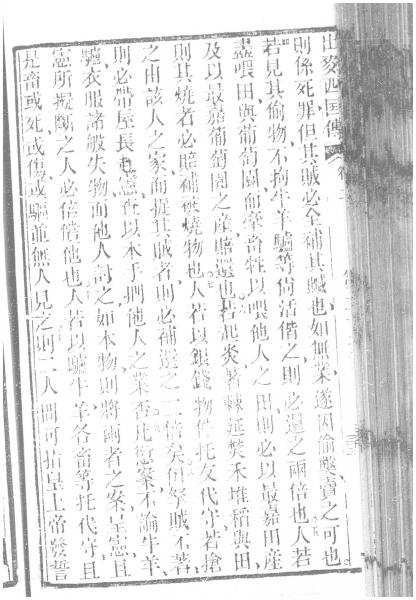 出麥西國傳
則係死罪但其賊必全補其贓也如無業遂因偷應賣之可也
若見其偷物不拘牛羊驢等尚活偕之則必還之兩倍也人若
喂田與葡萄園而牽畜牲以喂他人之田則必以最嘉田產
及以最嘉葡萄園之產賠還也若起炎著棘延焚禾堆稻與田
則其燒者必賠補被燒物也人若以銀錢物件托友代守若搶
之由該人之家而捉其賊者則必補還之二倍矣倘拏賊不著
則必帶屋長 憲 以本手捫他人之業否凡愆案不論牛羊
驢衣服諸般失物而他人討之如本物則將兩者之案呈憲且
憲所擬斷之人必倍償他也人若以驢牛羊各畜等托代守且
是畜或死或傷或驅並無人見之則二人間可指皇上帝發誓